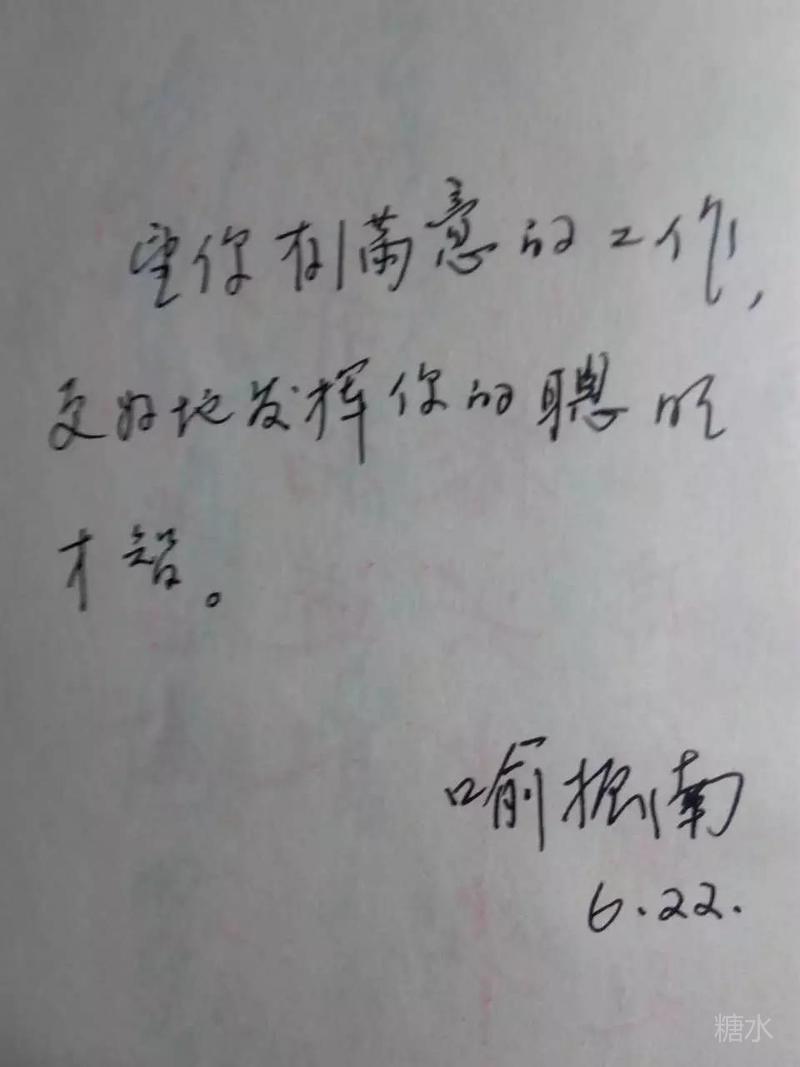 望你有满意的工作,
更好地发挥你的聪明
才智。
喻振南
6.22.
糖水